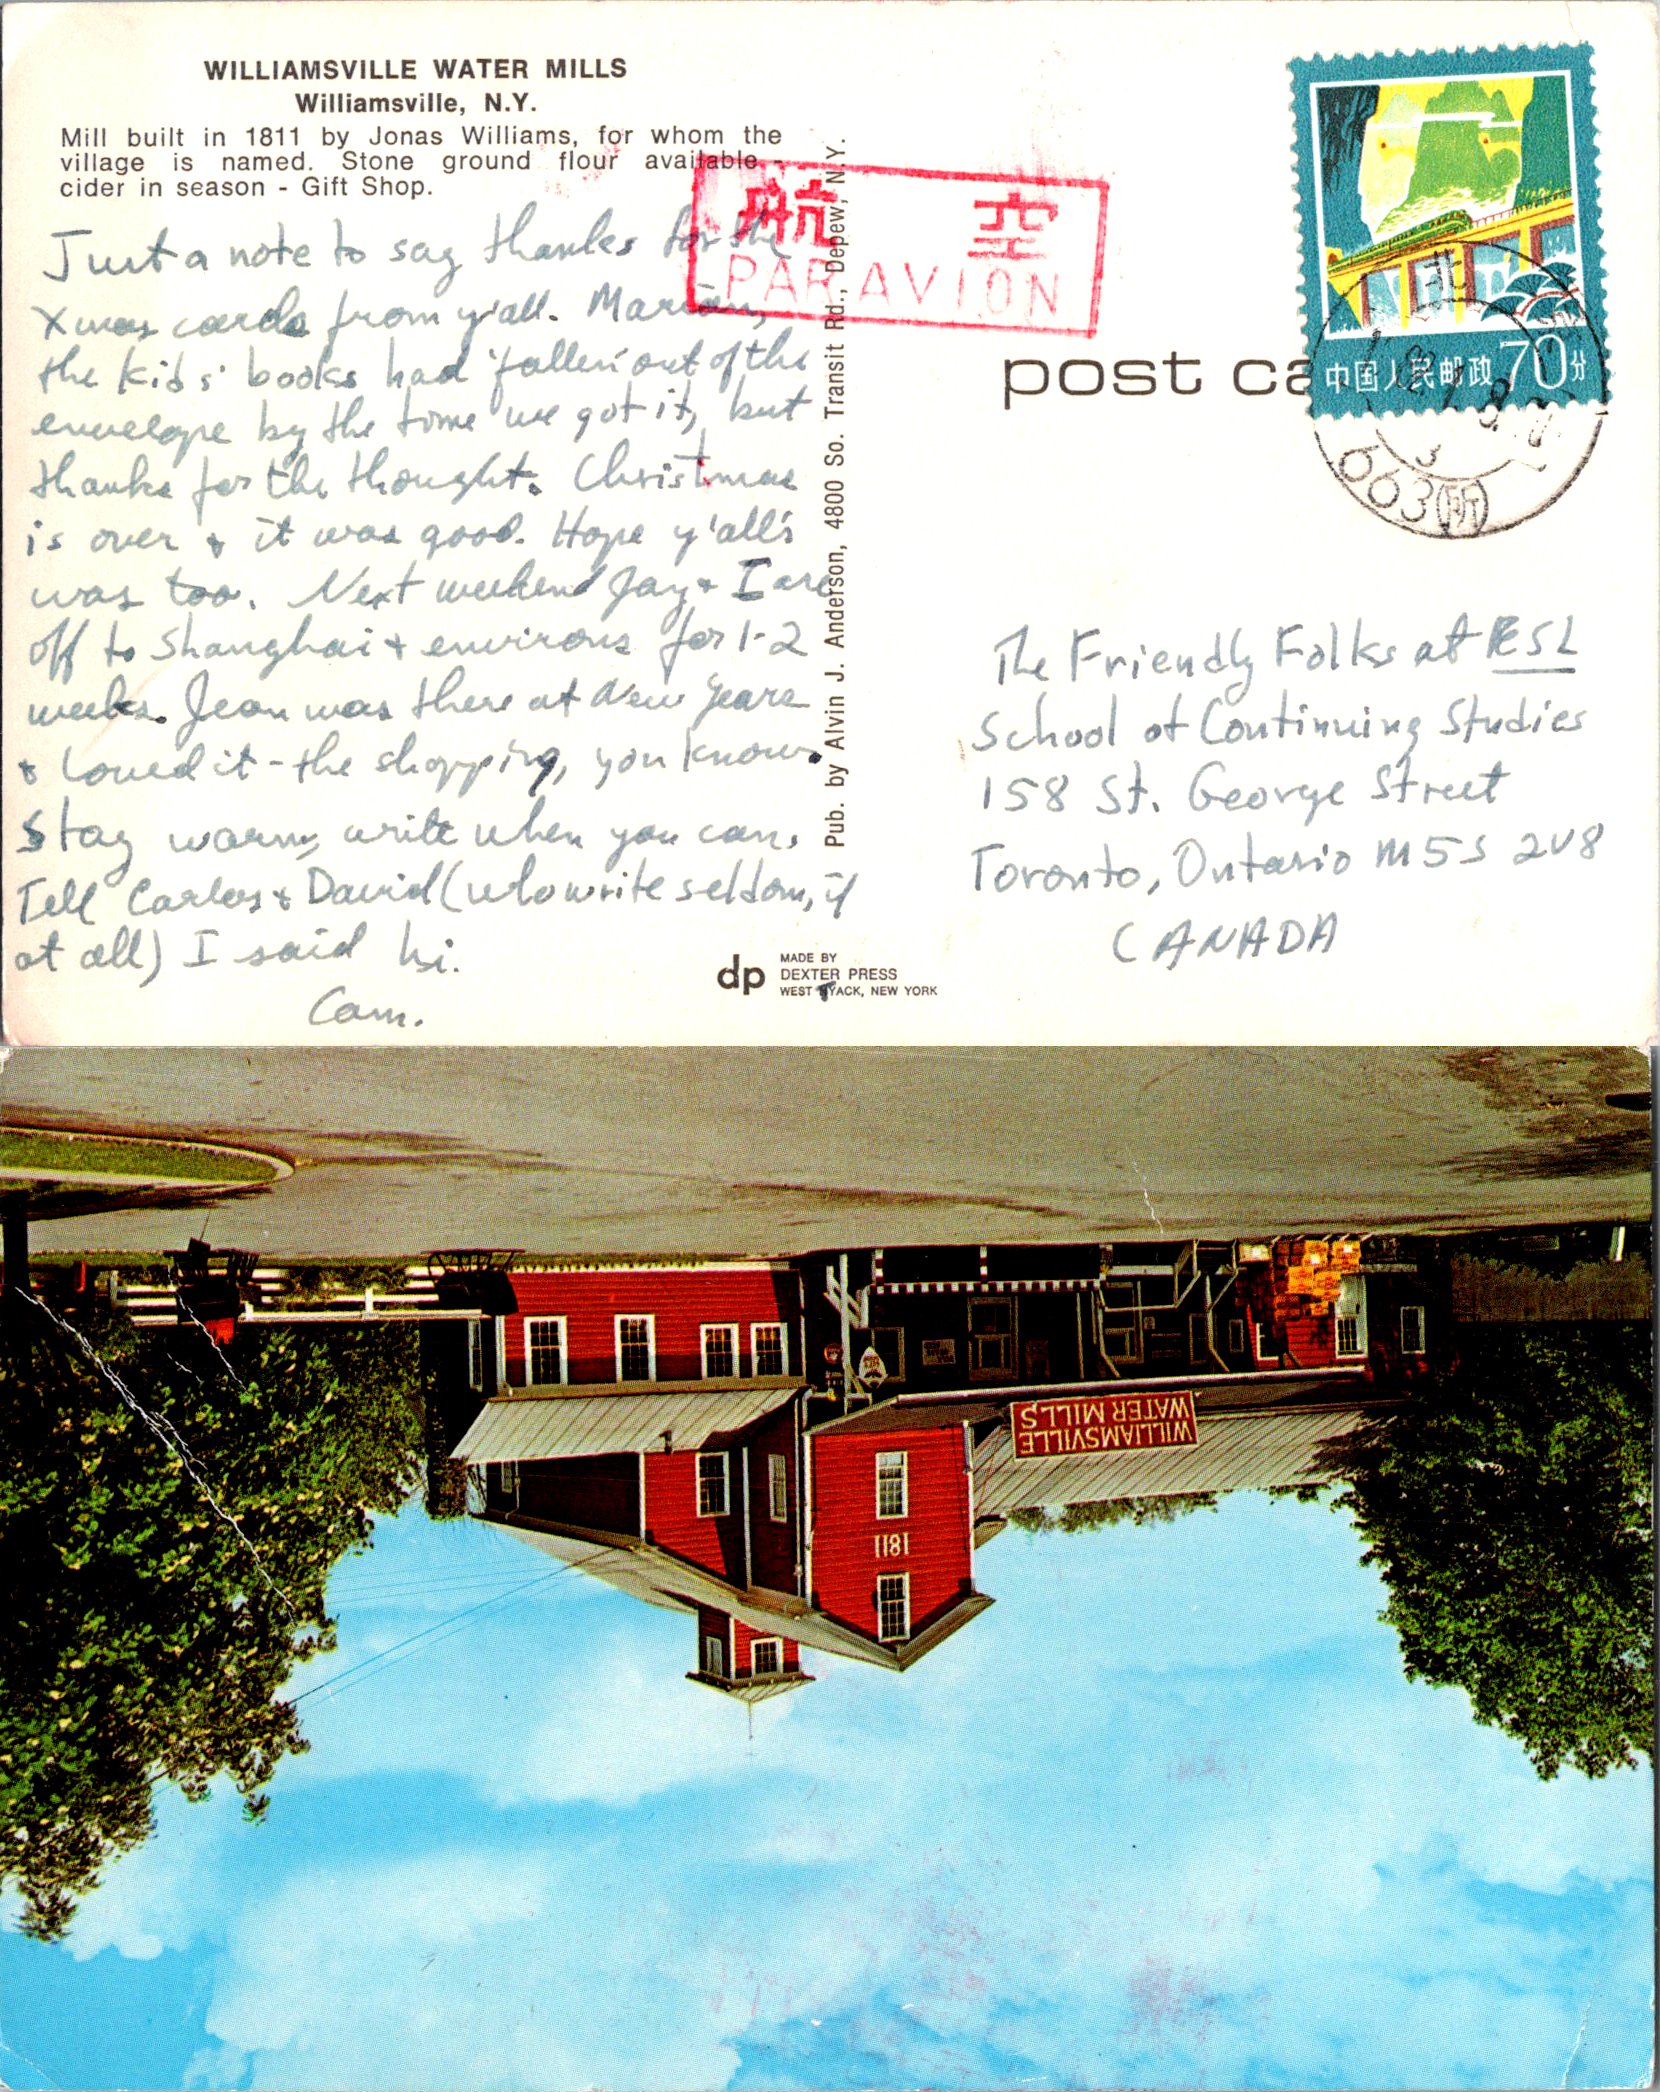 WILLIAMSVILLE WATER MILLS
Williamsville, N.Y.
Mill built in 1811 by Jonas Williams, for whom the
village is named. Stone ground flour available -
cider in season - Gift Shop.
Just a note to say thanks for the
Xmas cards from y'all. Marian,
the kids' books had fallen out of the
envelope by the time we got it, but
thanks for the thought. Christmas
is over & it was good. Hope y'all's
was too. Next weekend Jay & I are
off to Shanghai & environs for 1-2
weeks. Jean was there at New Years
& loved it - the shopping, you know.
Stay warm, write when you can.
Tell Carlos & David (who write seldom, if
at all) I said hi.
Cam.
Pub. by Alvin J. Anderson, 4800 So. Transit Rd., Depew, N.Y.
dp
MADE BY
DEXTER PRESS
WEST NYACK, NEW YORK
航空
PAR AVION
post ca
中国人民邮政 70分
北
663 所
The Friendly Folks at ESL
School of Continuing Studies
158 St. George Street
Toronto, Ontario M5S 2V8
CANADA
WILLIAMSVILLE
WATER MILLS
1811